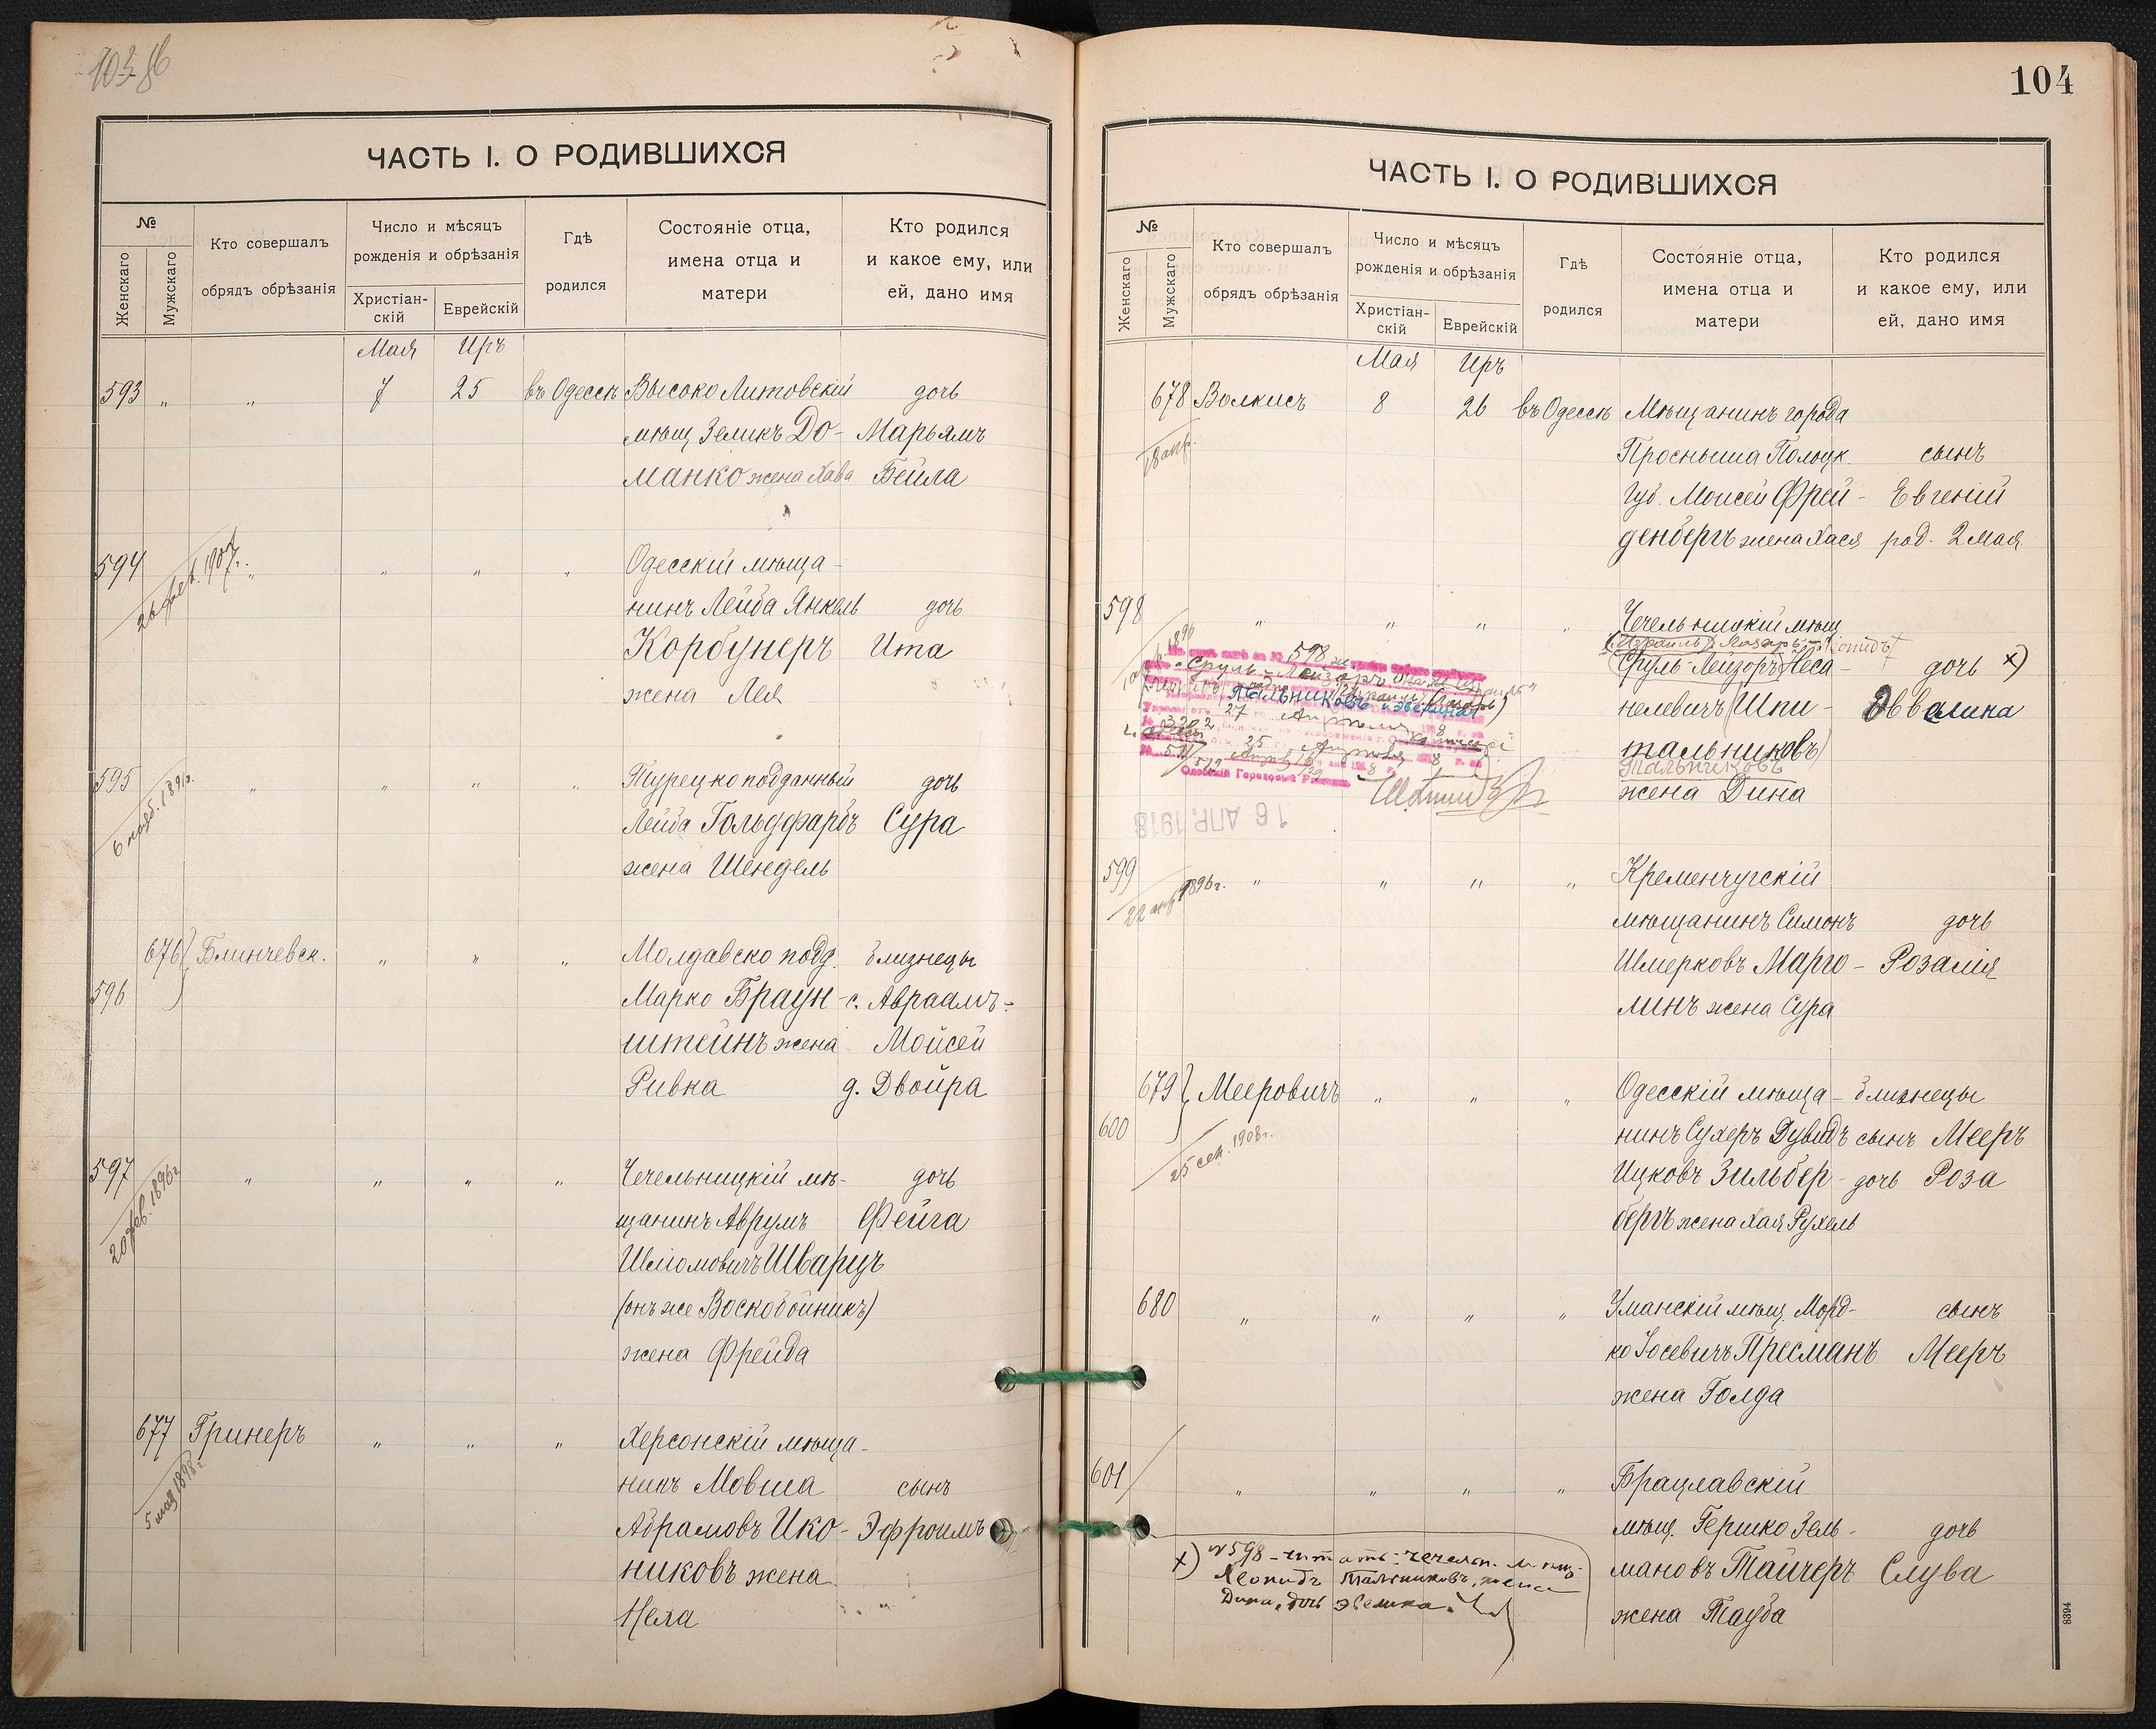 ЧАСТЬ I. О РОДИВШИХСЯ
№
Женскаго
Мужскаго
Кто совершалъ
обрядъ обрѣзанія
Число и мѣсяцъ
рожденія и обрѣзанія
Христіан-
скій
Еврейскій
Гдѣ
родился
Состояніе отца,
имена отца и
матери
Кто родился
и какое ему, или
ей, дано имя
Мая Иръ
593 " " 7 25 въ Одессѣ Высоко Литовскій дочь
мѣщ Зеликъ До- Марьямъ
манко жена Хава Бейла
594 " " " " Одесскій мѣща-
26 1907г.
нинъ Лейба Янкель дочь
Корбунеръ Ита
жена Лея
595 " " " " Турецкоподданный дочь
6 нояб. 1896г.
Лейба Гольдфарбъ Сура
жена Шендель
676 Блинчевск. " " " Молдавско подд. близнецы
596 Марко Браун- с. Авраамъ-
штейнъ жена Мойсей
Ривка д. Двойра
597 " " " " Чечельницкій мѣ- дочь
20 фев. 1896г.
щанинъ Аврумъ Фейга
Шліомовичъ Шварцъ
(онъ же Воскобойникъ)
жена Фрейда
677 Гринеръ " " " Херсонскій мѣща-
5 мая 1898г.
нинъ Мовша сынъ
Абрамовъ Ико- Эфроимъ
никовъ жена
Неха
104
ЧАСТЬ I. О РОДИВШИХСЯ
№
Женскаго
Мужскаго
Кто совершалъ
обрядъ обрѣзанія
Число и мѣсяцъ
рожденія и обрѣзанія
Христіан-
скій
Еврейскій
Гдѣ
родился
Состояніе отца,
имена отца и
матери
Кто родился
и какое ему, или
ей, дано имя
Мая Иръ
678 Волкисъ 8 26 въ Одессѣ Мѣщанинъ города
Просныша Полоцк. сынъ
Губ. Моисей Фрей- Евгеній
денбергъ жена Хася род. 2 мая
598 " " " " Чечельницкій мѣщ
Сруль-Лейзоръ Неса- дочь х)
нелевичъ (Шпи- Эввелина
тальниковъ)
Тальниковъ
жена Дина
598
Сруль-Лейзоръ
Тальниковъ
27
3202
25
Одесскій Городовой Раввинъ
16 АПР. 1918
599 " " " " Кременчугскій
22 апр 1896г.
мѣщанинъ Симонъ дочь
Шмерковъ Марго- Розалія
линъ жена Сура
679 Мееровичъ " " " Одесскій мѣща- близнецы
600 нинъ Сухеръ Дувидъ сынъ Мееръ
25 сен. 1908г.
Ицковъ Зильбер- дочь Роза
бергъ жена Хая Рухель
680 " " " " Уманскій мѣщ. Морд- сынъ
ко Іосевичъ Пресманъ Мееръ
жена Голда
601 " " " " Брацлавскій
мѣщ. Гершко Зель- дочь
мановъ Тайчеръ Слува
жена Тауба
х) №598 - читать: чечельн. мѣщ.
Леонидъ Тальниковъ, жена
Дина, дочь Эвелина.
8394